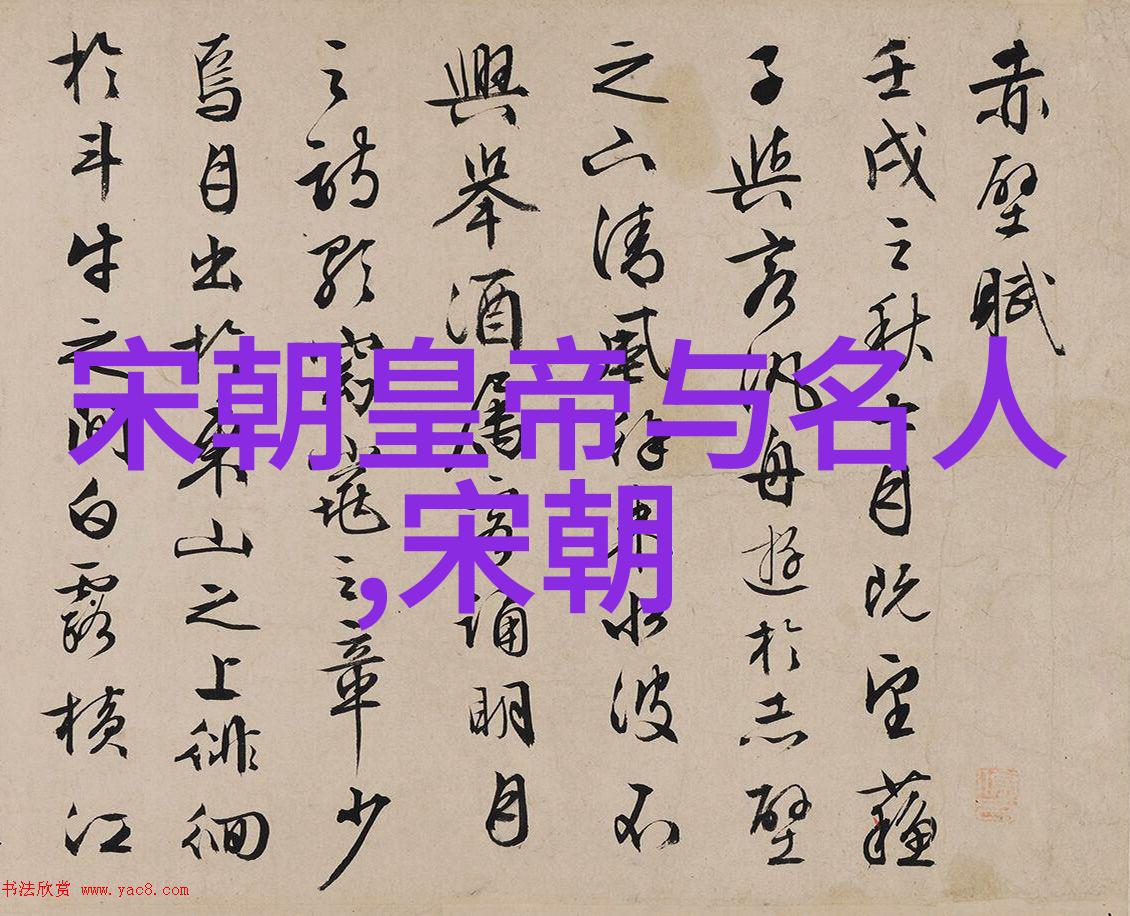 赤壁賦
壬戌之秋七月既望蘇
子與客汎舟遊於赤壁
之下清風徐來水波不
興舉酒屬客誦明月
之詩歌窈窕之章少
焉月出於東山之上徘徊
於斗牛之間白露橫江
宋朝皇帝与名人
,宋朝
书法欣赏 www.yac8.com